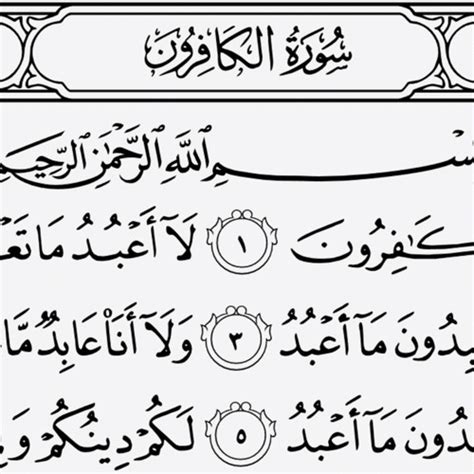 سُورَةُ الكَافِرُونَ
ـسْمِ ٱللَّهِ ٱلرَّحْمَٰنِ ٱلرَّحِيمِ
ـكَٰفِرُونَ ١ لَآ أَعْبُدُ مَا تَعْـ
ـبِدُونَ مَآ أَعْبُدُ ٣ وَلَآ أَنَا۠ عَابِدٌ مَّا
ـدُونَ مَآ أَعْبُدُ ٥ لَكُمْ دِينُكُمْ وَ